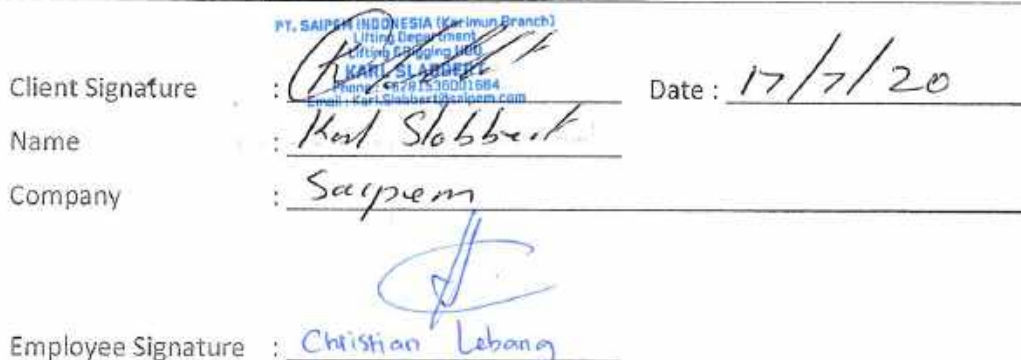 PT. SAIPEM INDONESIA (Karimun Branch)
Lifting Department
Lifting & Rigging HOD
KARL SLABBERT
Phone : +6281536001664
Email : Karl.Slabbert@saipem.com
Client Signature :
Date : 17/7/20
Name : Karl Slabbert
Company : Saipem
Employee Signature : Christian Lebang